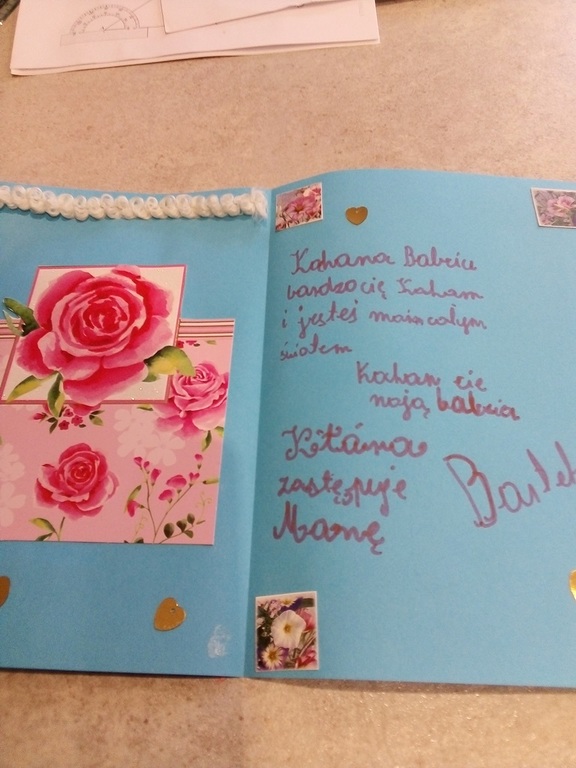 Kahana Babciu
bardzo cię Kaham
i jesteś moim całym
śiatem
Kaham cie
moją babcia
Ktúra
zastępuje
Mamę
Bartek